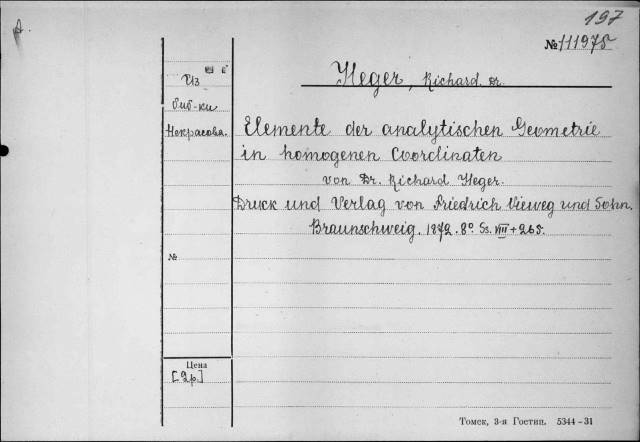 197
№111975
Из
Heger, Richard. Dr.
биб-ки
Некрасова.
Elemente der analytischen Geometrie
in homogenen Coordinaten
von Dr. Richard Heger.
Druck und Verlag von Friedrich Vieweg und Sohn.
Braunschweig. 1872. 8º. Ss. VIII + 265.
№
Цена
[2р.]
Томск, 3-я Гостип. 5344–31